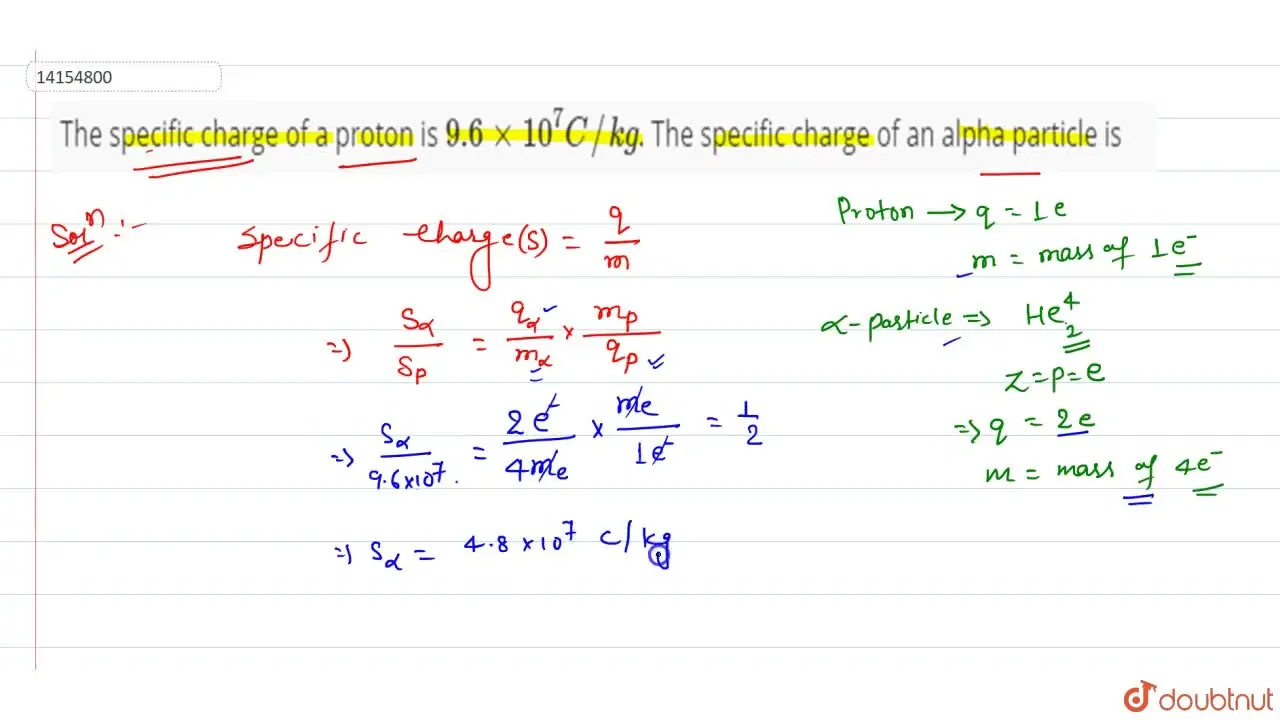 14154800
The specific charge of a proton is 9.6 × 10⁷C/kg. The specific charge of an alpha particle is
Solⁿ :-
Specific charge(S) = q/m
=> Sα/Sp = qα/mα × mp/qp
=> Sα/9.6×10⁷. = 2e⁻/4me × me/1e⁻ = 1/2
=> Sα = 4.8 × 10⁷ C/kg
Proton → q = 1e
m = mass of 1e⁻
α-particle => He₂⁴
Z=P=e
=> q = 2e
m = mass of 4e⁻
doubtnut